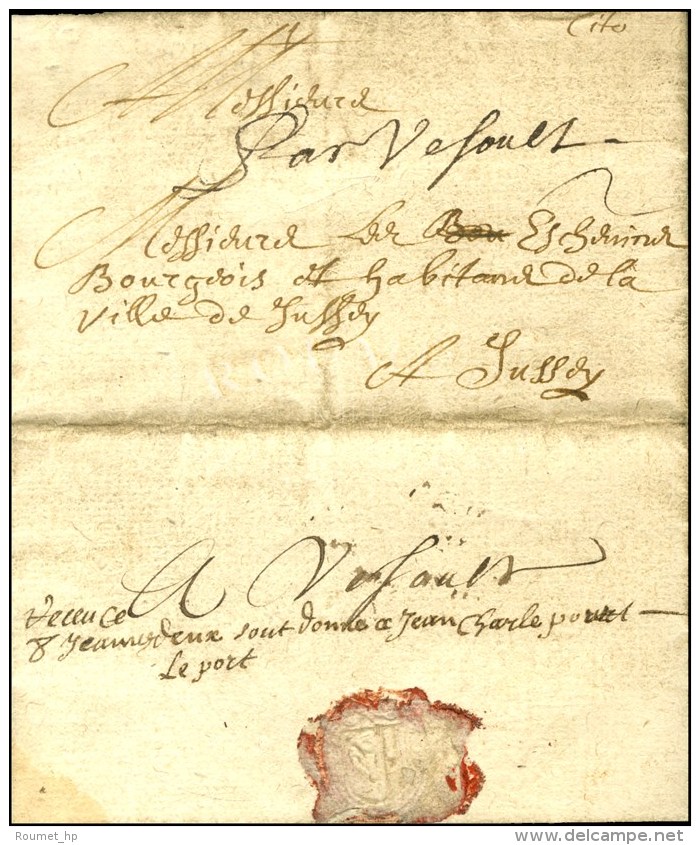 Cito
Messieurs
Par Vesoult
Messieurs Les Bou Eschevins
Bourgeois et habitans de la
ville de Jussey
A Jussey
A Vesoult
receu ce
8 Jeanv deux sout donné a Jean Charle pourt
Le port
Roumet_hp
www.delcampe.net